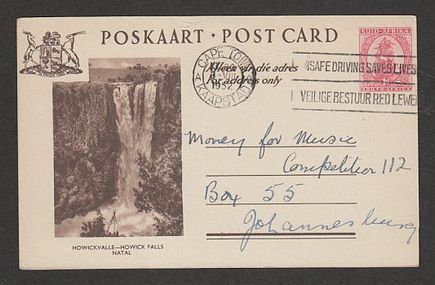 POSKAART · POST CARD
SUID-AFRIKA
SOUTH AFRICA
CAPE TOWN
1952
KAAPSTAD
Alleen vir die adres
For address only
SAFE DRIVING SAVES LIVES
VEILIGE BESTUUR RED LEWE
Money for Music
Competition 112
Box 55
Johannesburg
HOWICKVALLE—HOWICK FALLS
NATAL